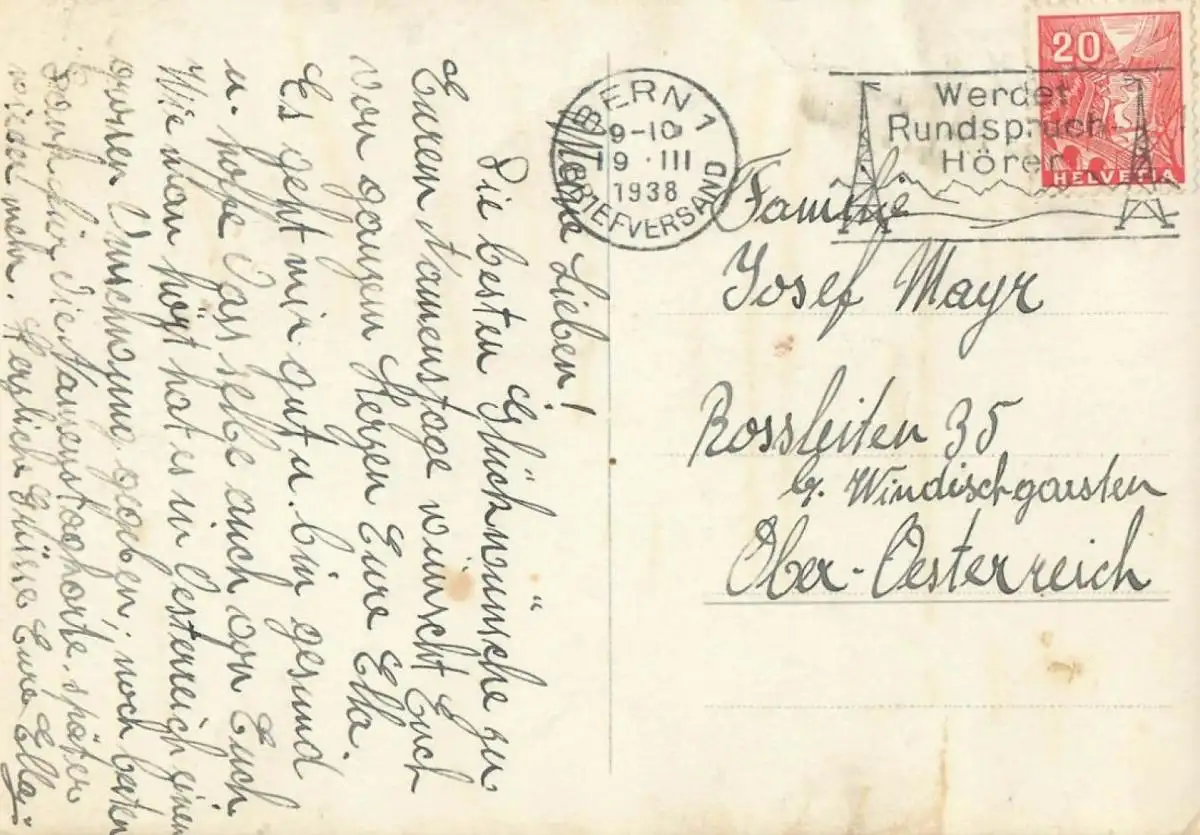 Meine Lieben!
Die besten Glückwünsche zu
Euren Namenstage wünscht Euch
von ganzen Herzen Eure Ella.
Es geht mir gut u. bin gesund
u. hoffe dasselbe auch von Euch
Wie man hört hat es in Oesterreich einen
großen Umschwung gegeben; noch besten
Dank für die Namenstagkarte. später
wieder mehr. Herzlich Grüsse Eure Ella
BERN 1
9-10
19·III
1938
BRIEFVERSAND
Werdet
Rundspruch-
Hörer
20
HELVETIA
Familie
Josef Mayr
Rossleiten 35
b. Windischgarsten
Ober-Oesterreich